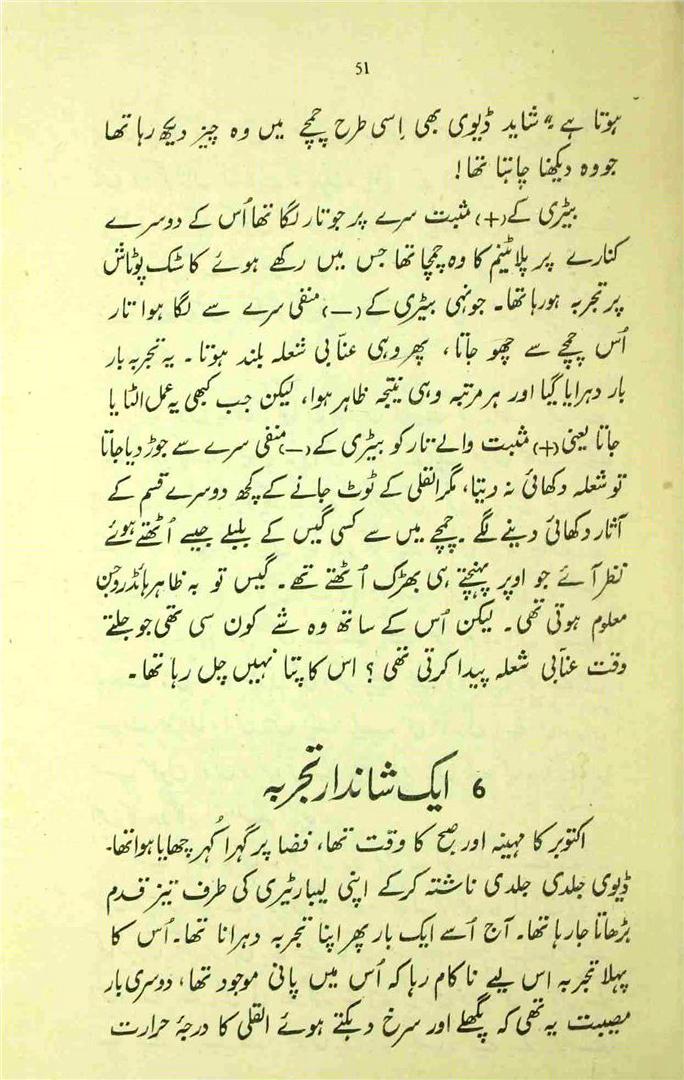 51
ہوتا ہے " شاید ڈیوی بھی اِسی طرح چمچے میں وہ چیز دیکھ رہا تھا
جو وہ دیکھنا چاہتا تھا!
بیٹری کے (+) مثبت سرے پر جو تار لگا تھا اُس کے دوسرے
کنارے پر پلاٹینم کا وہ چمچا تھا جس میں رکھے ہوئے کاسٹک پوٹاش
پر تجربہ ہو رہا تھا۔ جونہی بیٹری کے (−) منفی سرے سے لگا ہوا تار
اُس چمچے سے چھو جاتا، پھر وہی عنّابی شعلہ بلند ہوتا۔ یہ تجربہ بار
بار دہرایا گیا اور ہر مرتبہ وہی نتیجہ ظاہر ہوا، لیکن جب کبھی یہ عمل الٹایا
جاتا یعنی (+) مثبت والے تار کو بیٹری کے (−) منفی سرے سے جوڑ دیا جاتا
تو شعلہ دکھائی نہ دیتا، مگر القلی کے ٹوٹ جانے کے کچھ دوسرے قسم کے
آثار دکھائی دینے لگے۔ چمچے میں سے کسی گیس کے بلبلے جیسے اُٹھتے ہوئے
نظر آئے جو اوپر پہنچتے ہی بھڑک اُٹھتے تھے۔ گیس تو بہ ظاہر ہائڈروجن
معلوم ہوتی تھی۔ لیکن اُس کے ساتھ وہ شے کون سی تھی جو جلتے
وقت عنّابی شعلہ پیدا کرتی تھی؟ اس کا پتا نہیں چل رہا تھا۔
6 ایک شاندار تجربہ
اکتوبر کا مہینہ اور صبح کا وقت تھا، فضا پر گہرا کُہر چھایا ہوا تھا۔
ڈیوی جلدی جلدی ناشتہ کرکے اپنی لیبارٹیری کی طرف تیز قدم
بڑھاتا جا رہا تھا۔ آج اُسے ایک بار پھر اپنا تجربہ دہرانا تھا۔ اُس کا
پہلا تجربہ اس لیے ناکام رہا کہ اُس میں پانی موجود تھا، دوسری بار
مصیبت یہ تھی کہ پگھلے اور سرخ دہکتے ہوئے القلی کا درجۂ حرارت